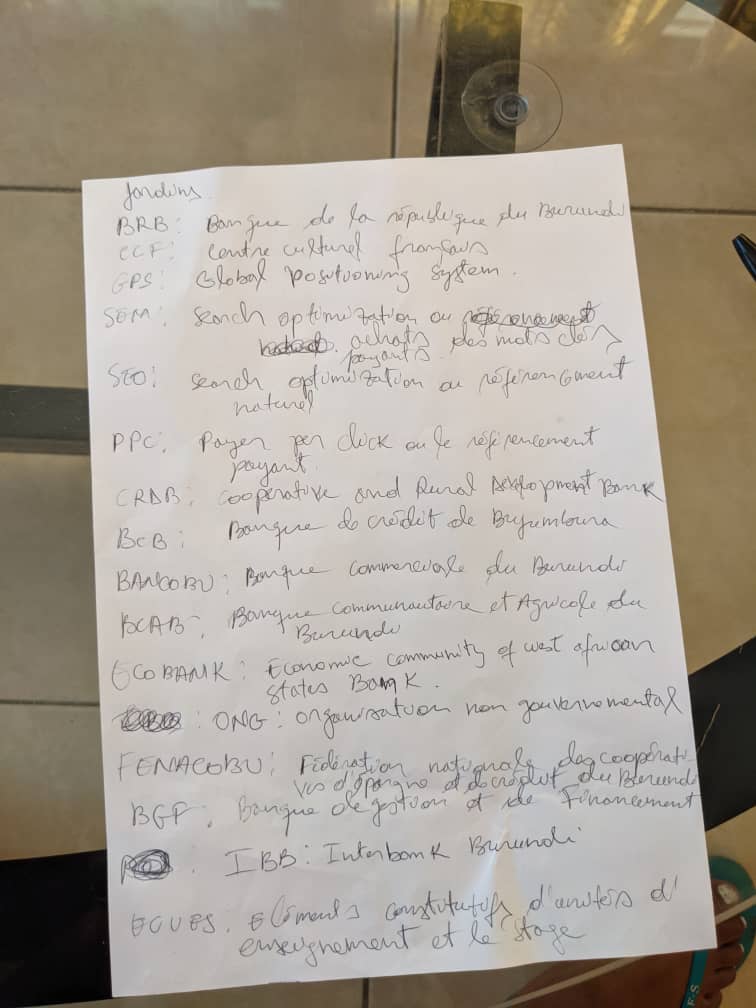 Jardins.
BRB: Banque de la république du Burundi
CCF: Centre culturel français
GPS: Global positioning system.
SEM: Search optimization ou
achats des mots clés
payants.
SEO: Search optimization ou référencement
naturel
PPC: Payer per click ou le référencement
payant.
CRDB: Cooperative and Rural Development Bank
BCB: Banque de crédit de Bujumbura
BANCOBU: Banque commerciale du Burundi
BCAB: Banque Communautaire et Agricole du
Burundi
ECOBANK: Economic community of west african
states Bank.
: ONG: organisation non gouvernemental
FENACOBU: Fédération nationale des coopérati-
ves d'épargne et de crédit du Burundi
BGF: Banque de gestion et de Financement
IBB: Interbank Burundi
ECUES: Eléments constitutifs d'unités d'
enseignement et le stage